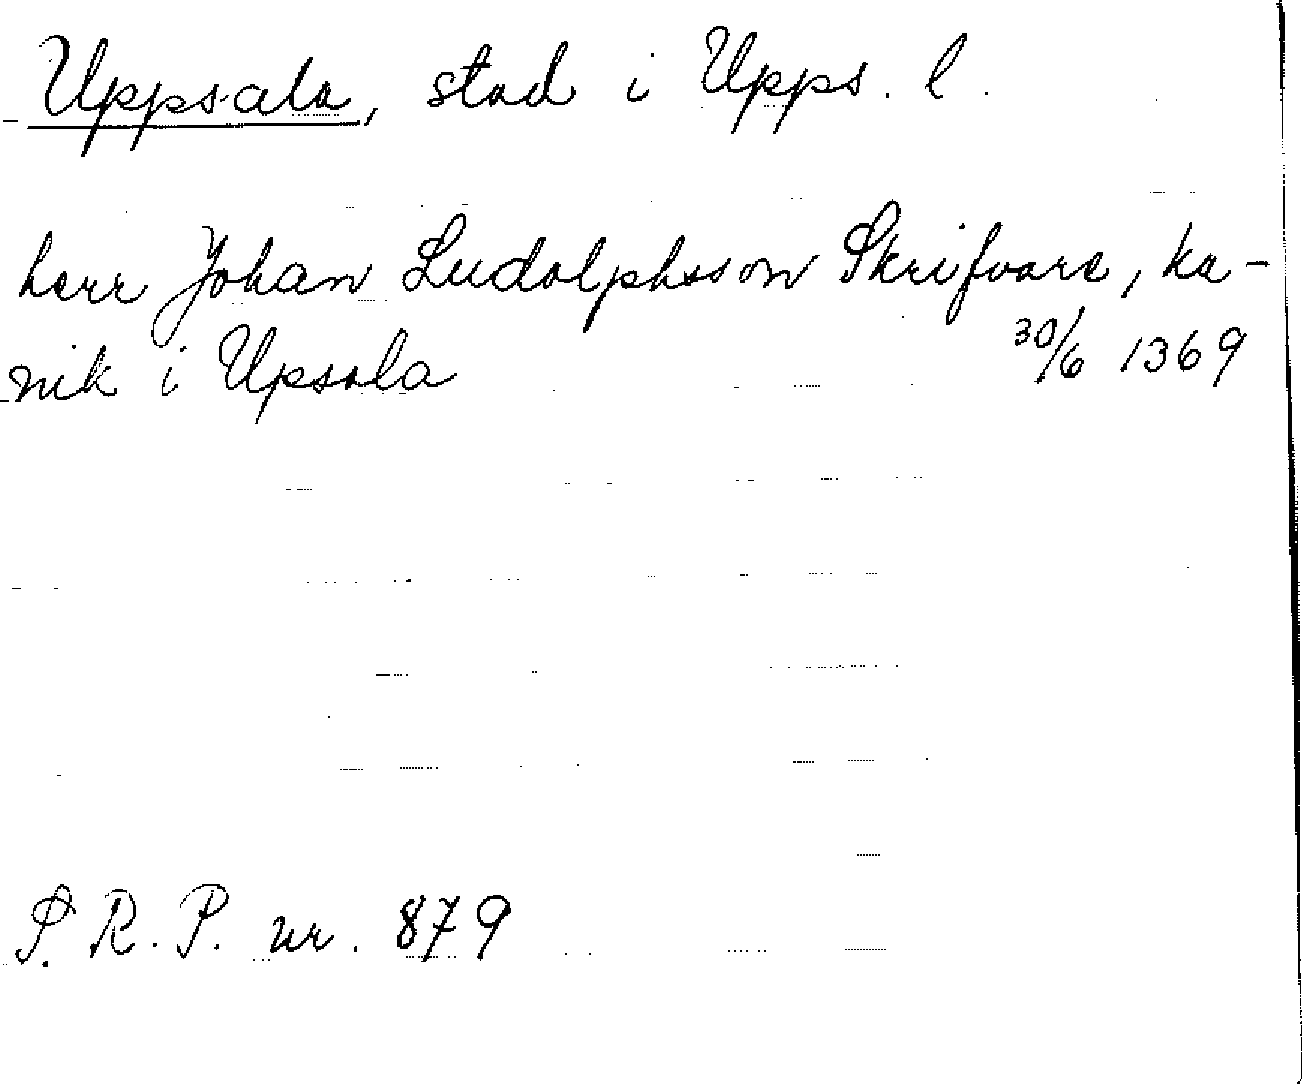 Uppsala, stad i Upps. l.
herr Johan Ludolphsson Skrifvare, ka-
nik i Upsala 30/6 1369
S. R. P. nr. 879